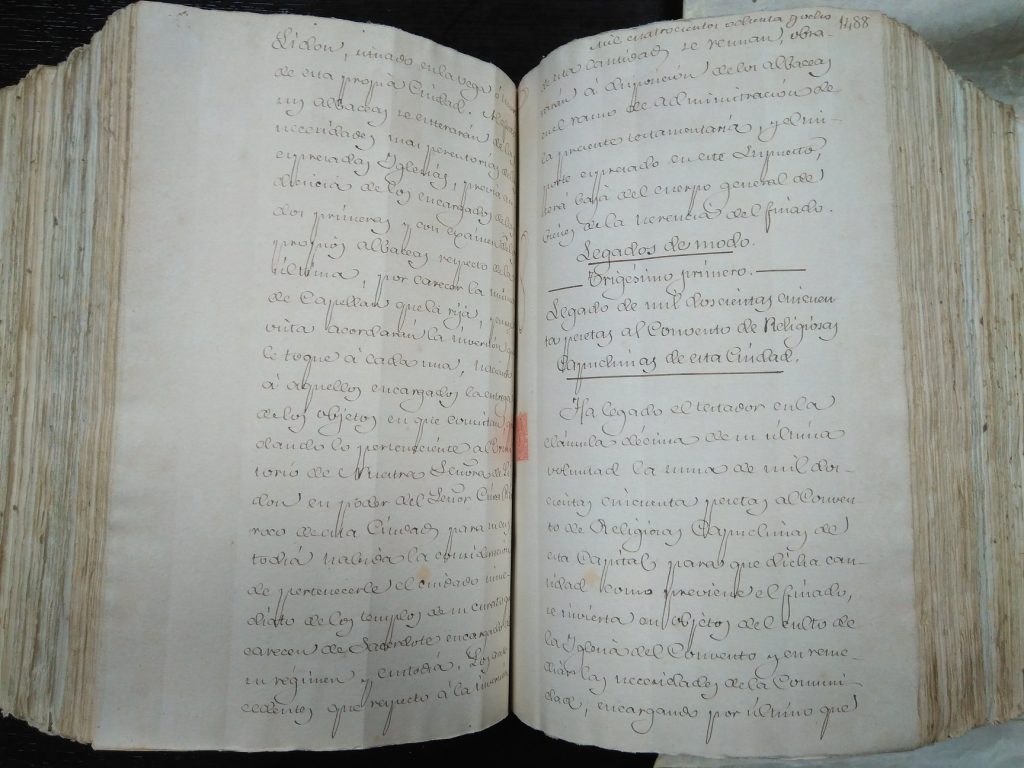 Lidon, situado en la vega
de esta propia Ciudad.
mis albaceas se enterarán de las
necesidades mas perentorias de las
expresadas Yglesias, previa au
diencia de los encargados de las
dos primeras y con examen de los
propios albaceas respecto de la
última, por carecer la misma
de Capellán que la rija, y en su
vista acordarán la inversión que
le toque á cada una, haciendo
á aquellos encargados la entrega
de los objetos en que consistan, que
dando lo perteneciente al Ora
torio de Nuestra Señora de Li
don en poder del Señor Cura Pár
roco de esta Ciudad para su cus
todia habida la consideración
de pertenecerle el cuidado inme
diato de los templos de su curato que
carecen de Sacerdote encargado de
su régimen y custodia. Los que
cedentes que respecto á la inversión
Mil cuatrocientos ochenta y ocho 1488
de esta cantidad se reunan, obra-
rán á disposición de los albaceas
en el ramo de administración de
la presente testamentaría, y el im-
porte expresado en este Supuesto,
será baja del cuerpo general de
bienes de la herencia del finado.
Legados de modo.
Trigésimo primero.
Legado de mil doscientas cincuen
ta pesetas al Convento de Religiosas
Capuchinas de esta Ciudad.
Ha legado el testador en la
cláusula décima de su última
voluntad la suma de mil dos-
cientas cincuenta pesetas al Conven-
to de Religiosas Capuchinas de
esta Capital para que dicha can-
tidad como previene el finado,
se invierta en objetos del culto de
la Yglesia del Convento y en reme-
diar las necesidades de la Comuni-
dad, encargando por último que